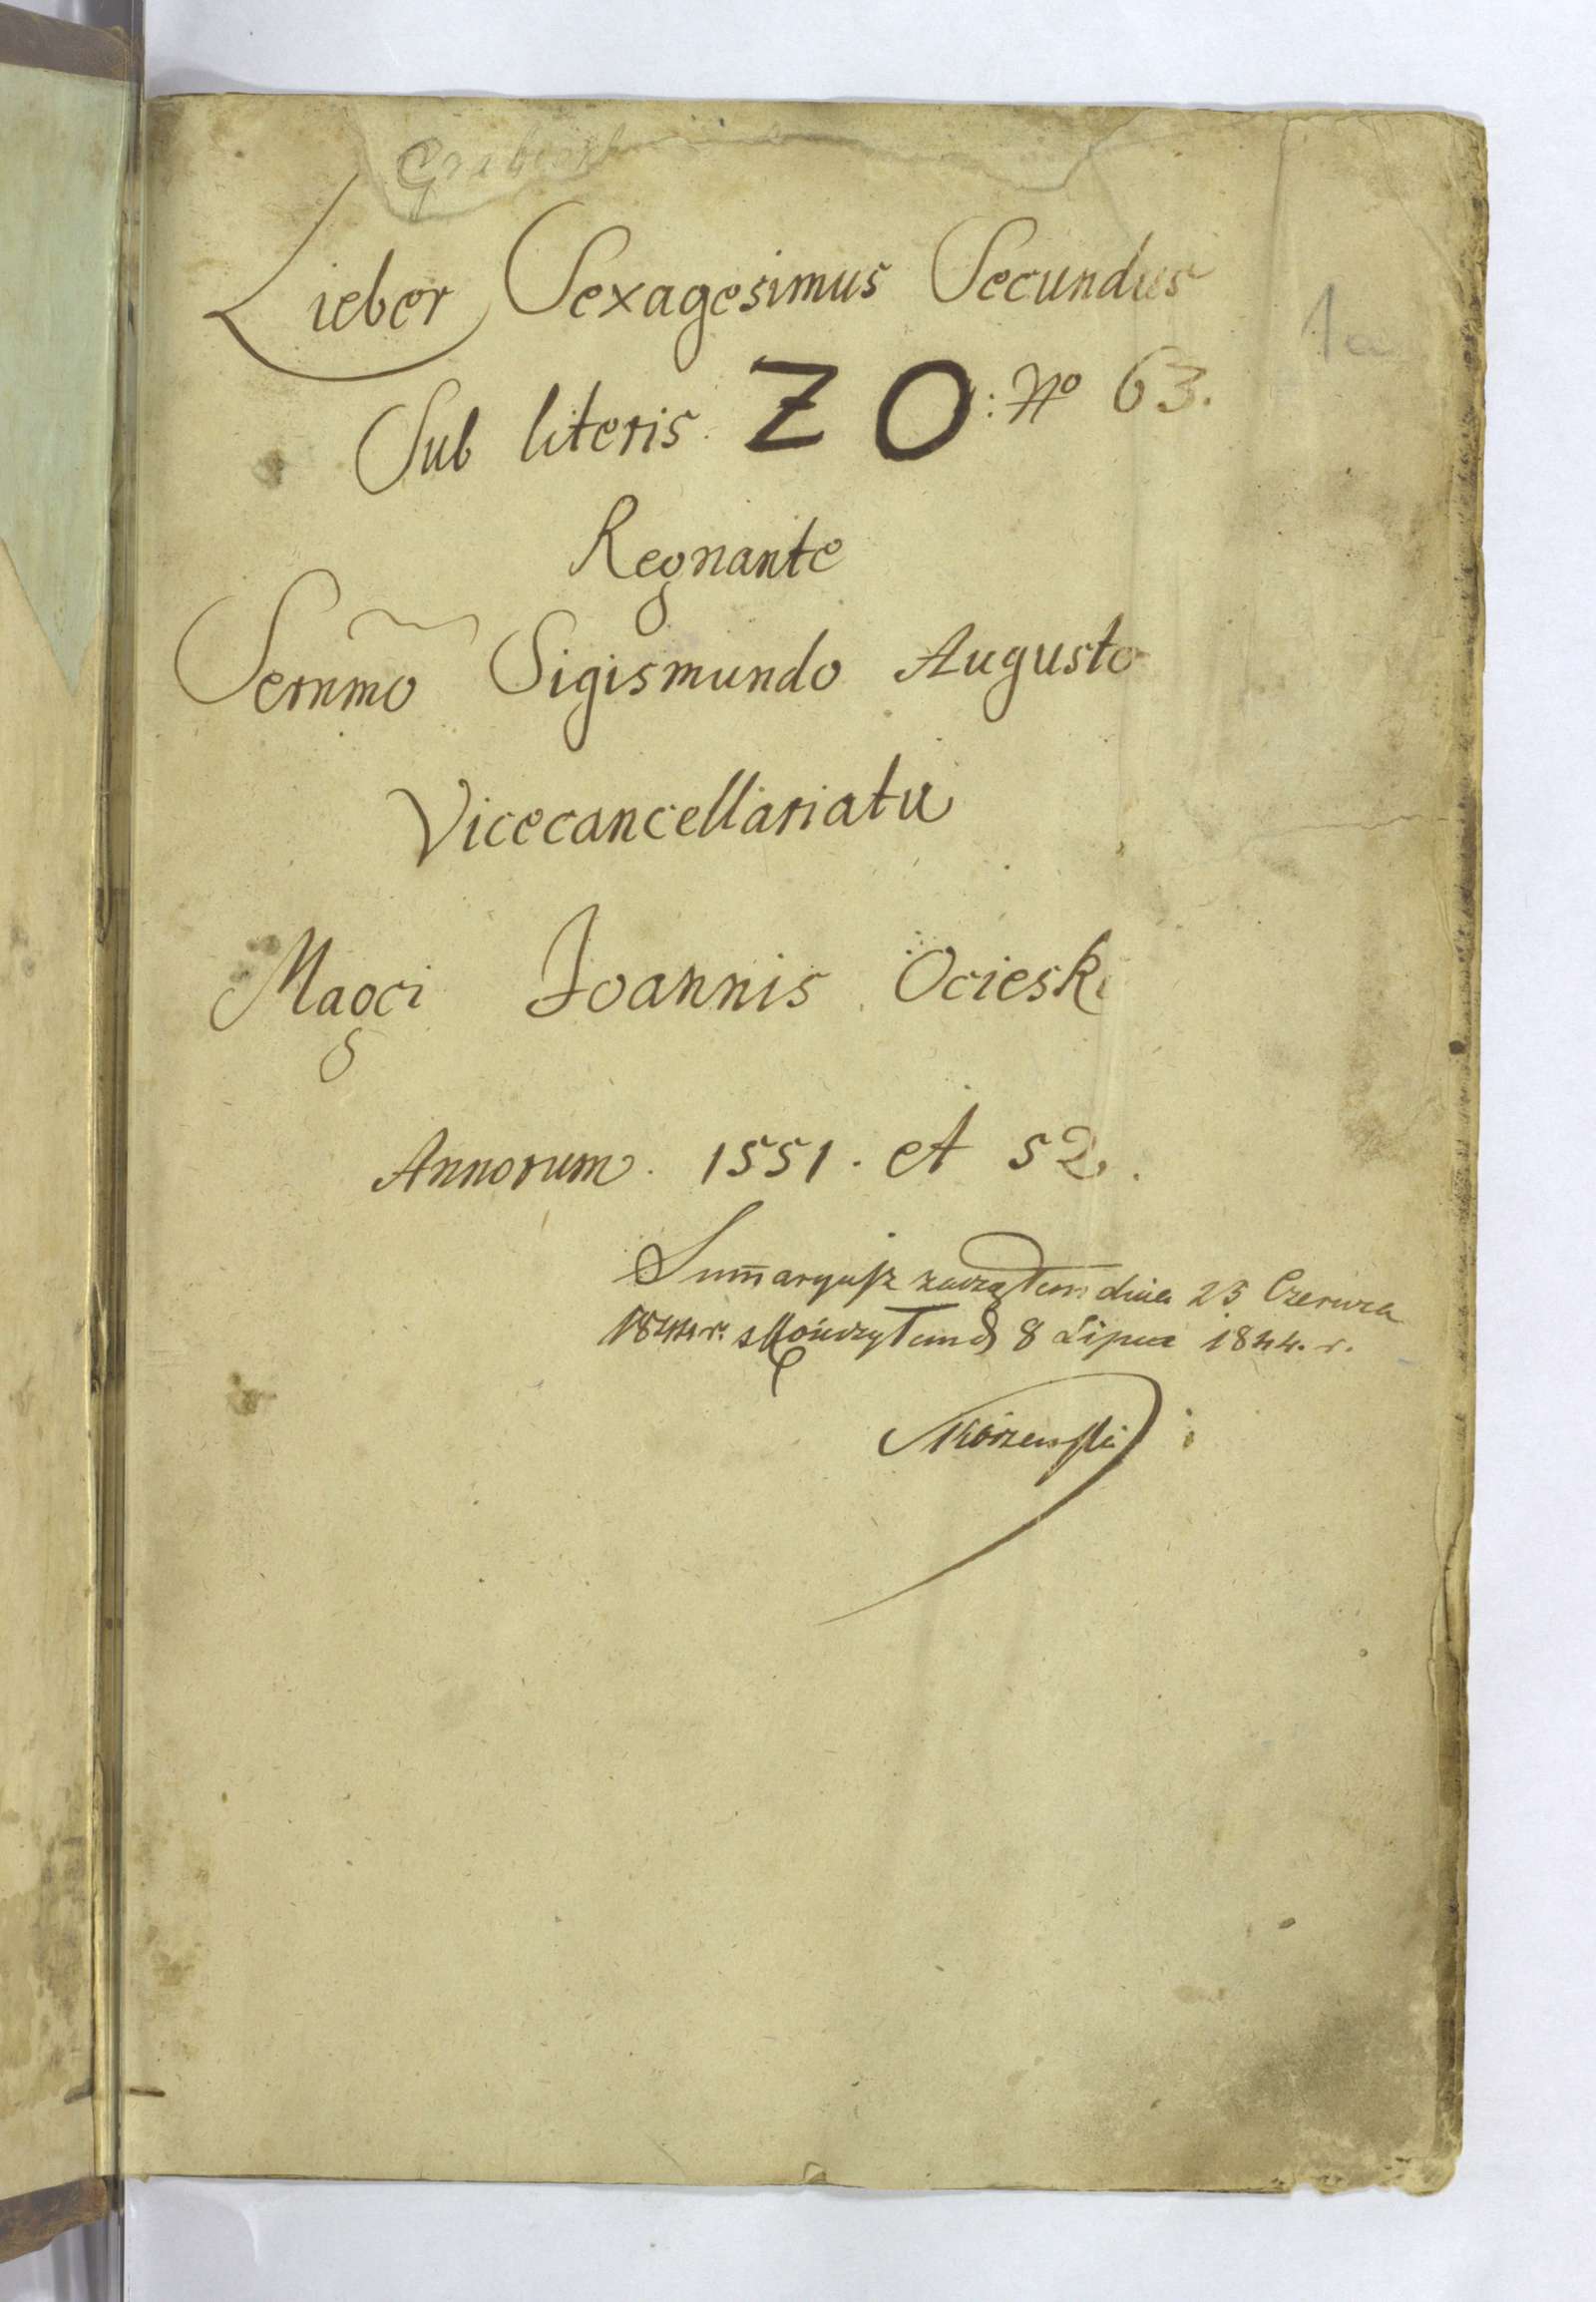 Lieber Sexagesimus Secundus
1a
Sub literis ZO: No 63.
Regnante
Sernmo Sigismundo Augusto
Vicecancellariatu
Magci Joannis Ocieski
Annorum. 1551. et 52.
Sum̄aryusz zacząłem dnia 23 Czerwca
1844 r. skończyłem d 8 Lipca 1844. r.